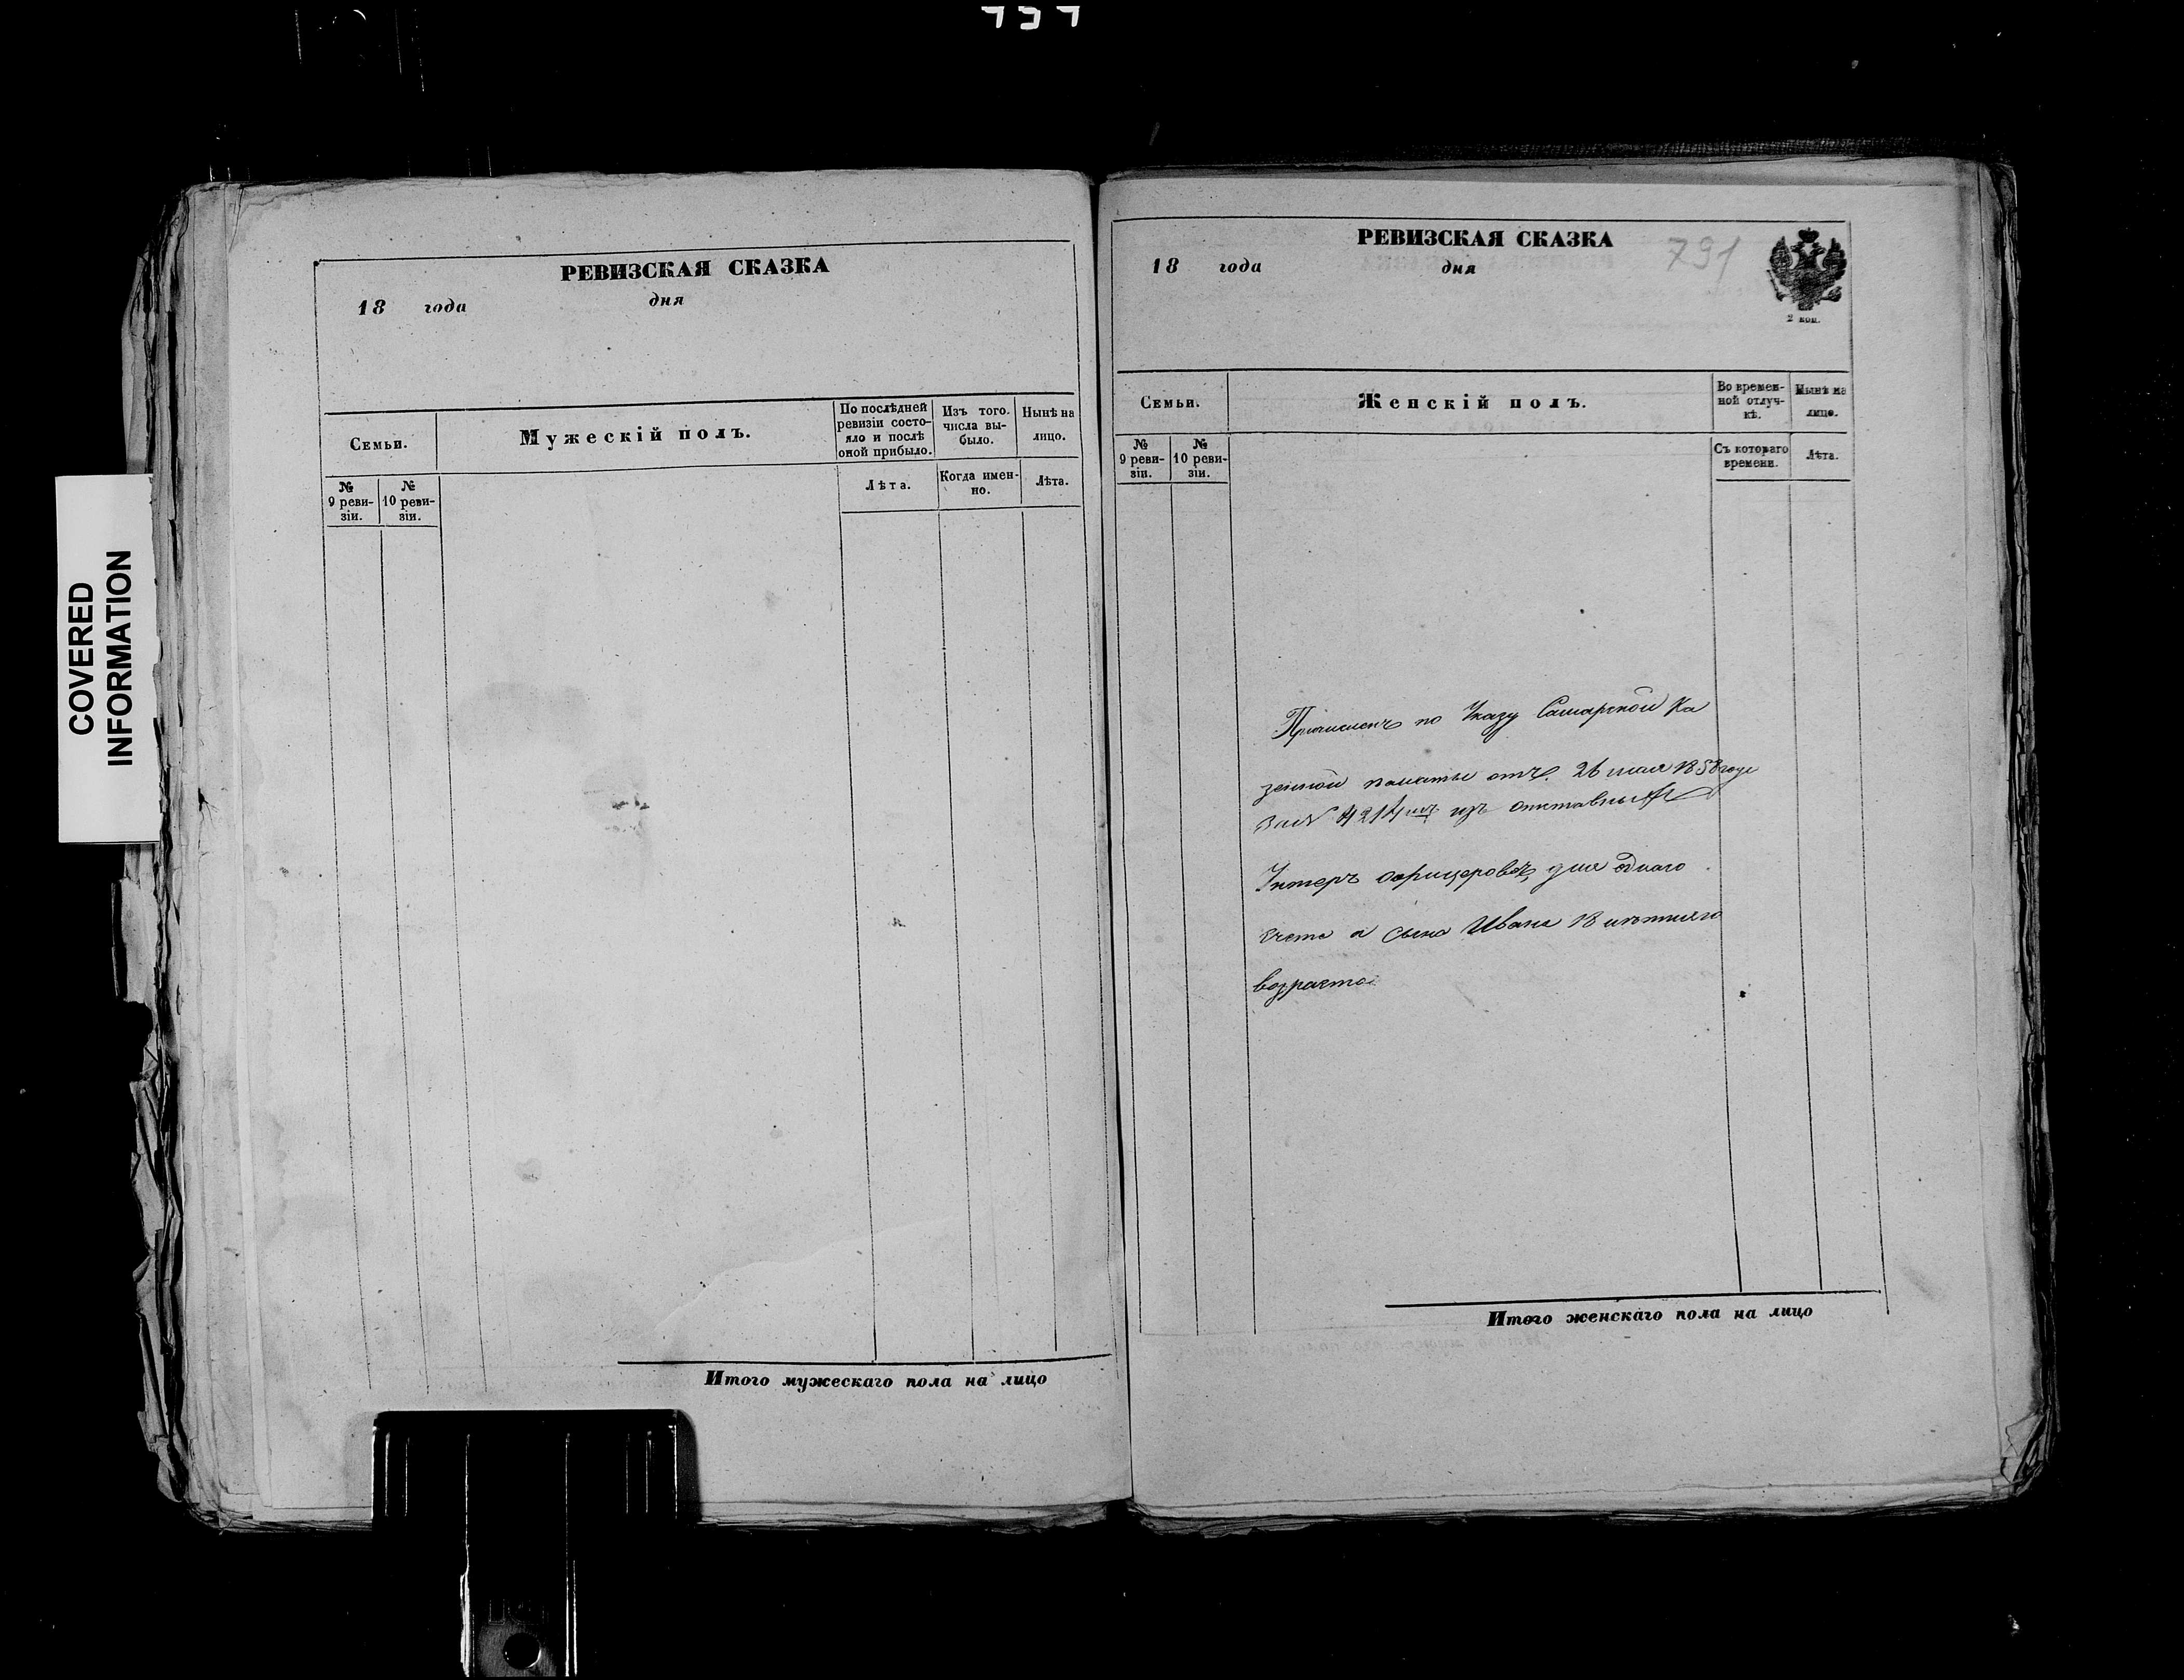 COVERED
INFORMATION
РЕВИЗСКАЯ СКАЗКА
18 года дня
Семьи.
Мужескій полъ.
По послѣдней
ревизіи состо-
яло и послѣ
оной прибыло.
Изъ того
числа вы-
было.
Нынѣ на
лицо.
№
9 реви-
зіи.
№
10 реви-
зіи.
Лѣта.
Когда имен-
но.
Лѣта.
Итого мужескаго пола на лицо
РЕВИЗСКАЯ СКАЗКА
791
18 года дня
2 коп.
Семьи.
Женскій полъ.
Во времен-
ной отлуч-
кѣ.
Нынѣ на
лицо.
№
9 реви-
зіи.
№
10 реви-
зіи.
Съ котораго
времени.
Лѣта.
Причисленъ по Указу Самарской Ка
зенной палаты отъ 26 мая 1858 года
за № 4214 изъ отставныхъ
Унтеръ офицеровъ для однаго
счета а сына Ивана 18 лѣтняго
возраста
Итого женскаго пола на лицо